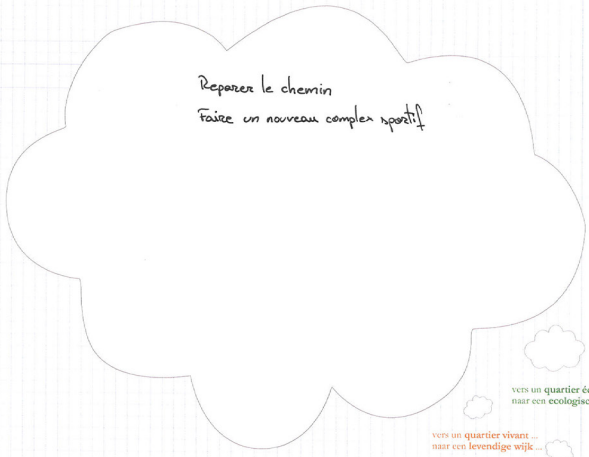 Reparer le chemin
Faire un nouveau complex sportif
vers un quartier
naar een ecologisc
vers un quartier vivant ...
naar een levendige wijk ...